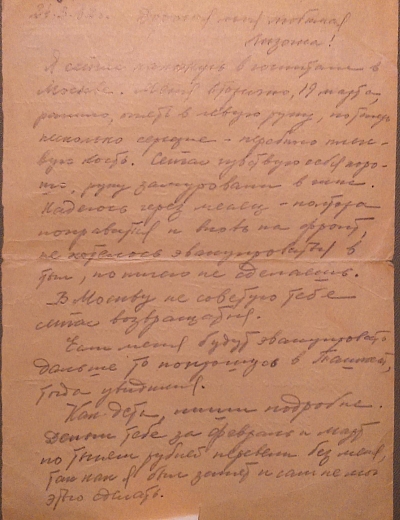 Дорогая моя любимая
Лизочка!
Я сейчас нахожусь в госпитале в
Москве. Меня вторично, 19 марта,
ранило, опять в левую руку, но теперь
несколько серьезнее - перебило плече-
вую кость. Сейчас чувствую себя хоро-
шо, руку замуровали в гипс.
Надеюсь через месяц - полтора
поправиться и вновь на фронт,
не хотелось эвакуироваться в
тыл, но ничего не сделаешь.
В Москву не советую тебе
сейчас возвращаться.
Если меня будут эвакуировать
дальше то попрошусь в Ташкент,
тогда увидимся.
Как дети, пиши подробнее.
Деньги тебе за февраль и март
по тысяч рублей перевели без меня,
так как я был занят и сам не мог
этого сделать.